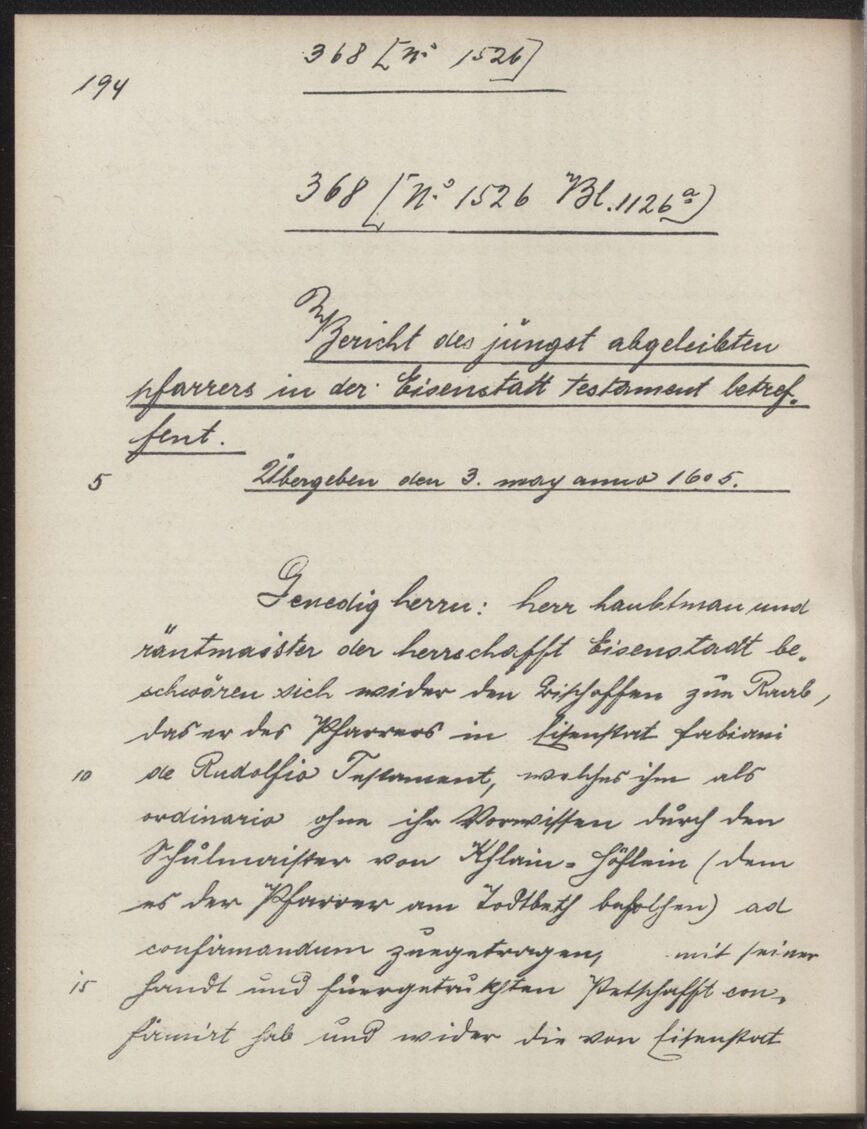 368 [No 1526]
194
368 [No 1526 Bl. 1126a)
Bericht des jüngst abgeleibten
pfarrers in der Eisenstatt testament betref-
fent.
5 Übergeben den 3. may anno 1605.
Genedig herrn: herr haubtman und
räntmaister der herrschafft Eisenstadt be-
schwären sich wider den Bischoffen zue Raab,
das er des Pfarrers in Eisenstat Fabiani
10 de Rudolfio Testament, welches ihm als
ordinario ohne ihr Vorwissen durch den
Schulmaister von Khlain-Höflein (dem
es der Pfarrer am Todtbeth befolhen) ad
confirmandum zuegetragen, mit seiner
15 handt und fürgetrukhten Petschafft con-
firmirt hab und wider die von Eisenstat